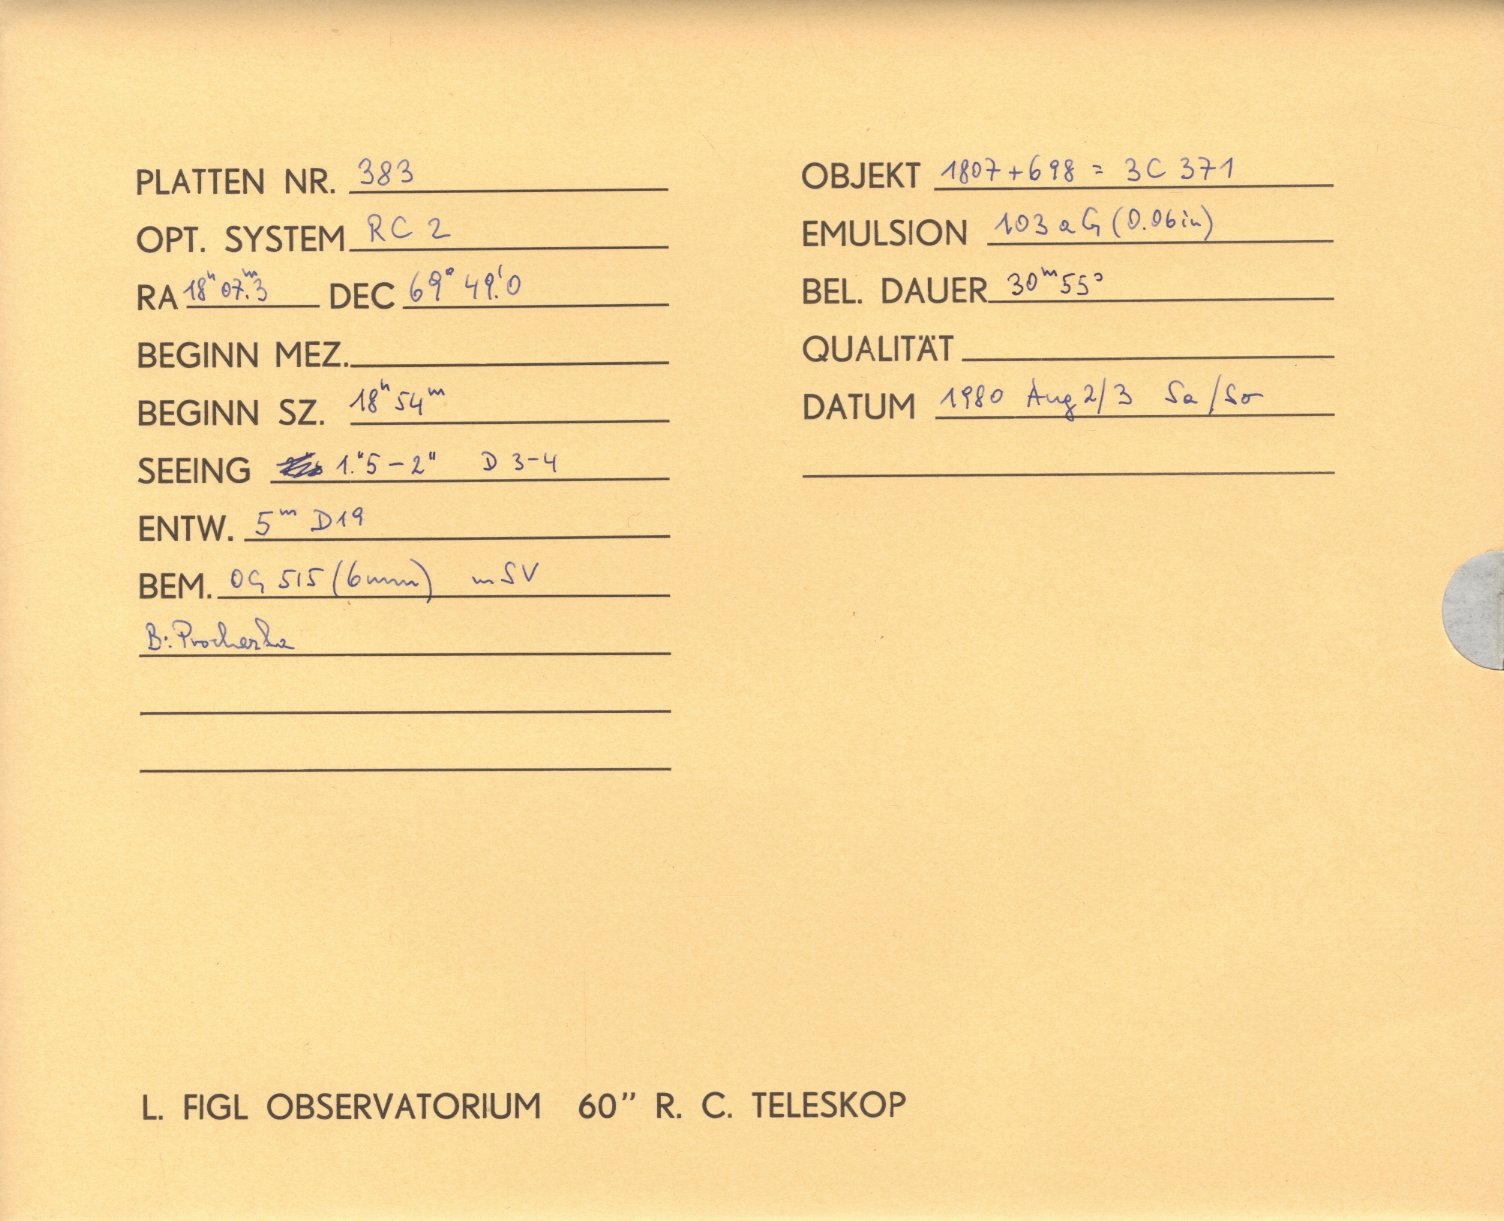 PLATTEN NR. 383
OPT. SYSTEM RC 2
RA 18ʰ 07ᵐ.3 DEC 69° 49'.0
BEGINN MEZ.
BEGINN SZ. 18ʰ 54ᵐ
SEEING 1."5 - 2" D 3-4
ENTW. 5ᵐ D19
BEM. OG 515 (6mm) mSV
B: Prochazka
OBJEKT 1807+698 = 3C 371
EMULSION 103 a G (0.06 in)
BEL. DAUER 30ᵐ 55ˢ
QUALITÄT
DATUM 1980 Aug 2/3 Sa/So
L. FIGL OBSERVATORIUM 60” R. C. TELESKOP